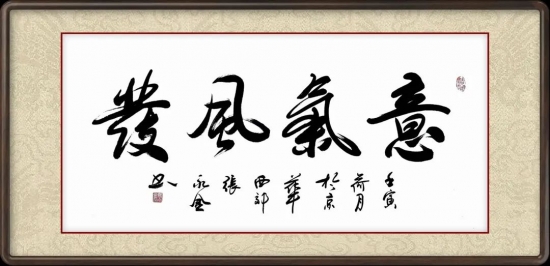 意氣風發
壬寅
荷月
於京
華
西郊
張
永
书